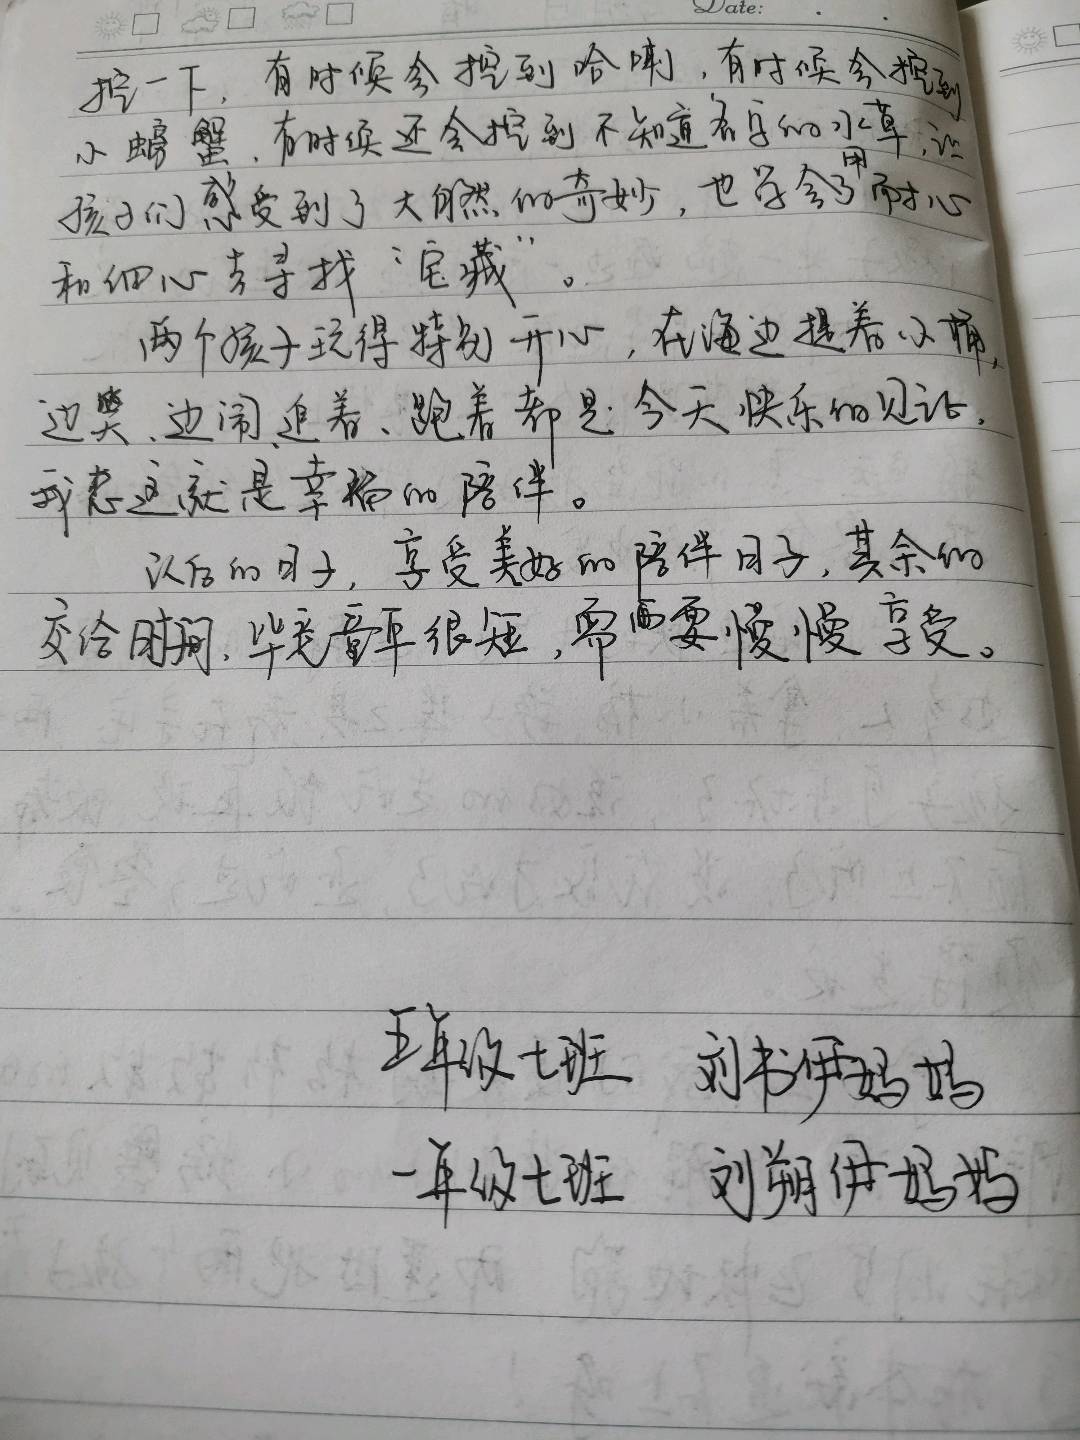 Date:
挖一下，有时候会挖到哈喇，有时候会挖到
小螃蟹，有时候还会挖到不知道名字的水草，让
孩子们感受到了大自然的奇妙，也学会了用耐心
和细心去寻找“宝藏”。
两个孩子玩得特别开心，在海边提着小桶，
边笑、边闹、追着、跑着都是今天快乐的见证，
我想这就是幸福的陪伴。
以后的日子，享受美好的陪伴日子，其余的
交给时间，毕竟童年很短，需要慢慢享受。
五年级七班 刘书伊妈妈
一年级七班 刘朔伊妈妈